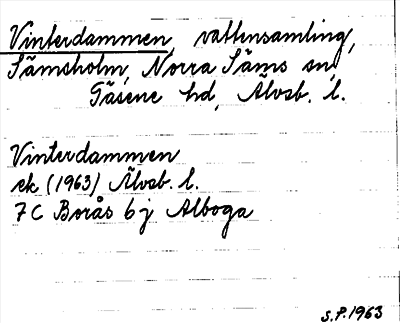 Vinterdammen, vattensamling,
Sämsholm, Norra Säms sn,
Gäsene hd, Älvsb. l.
Vinterdammen
ek (1963) Älvsb. l.
7 C Borås 6 j Alboga
S.P. 1963